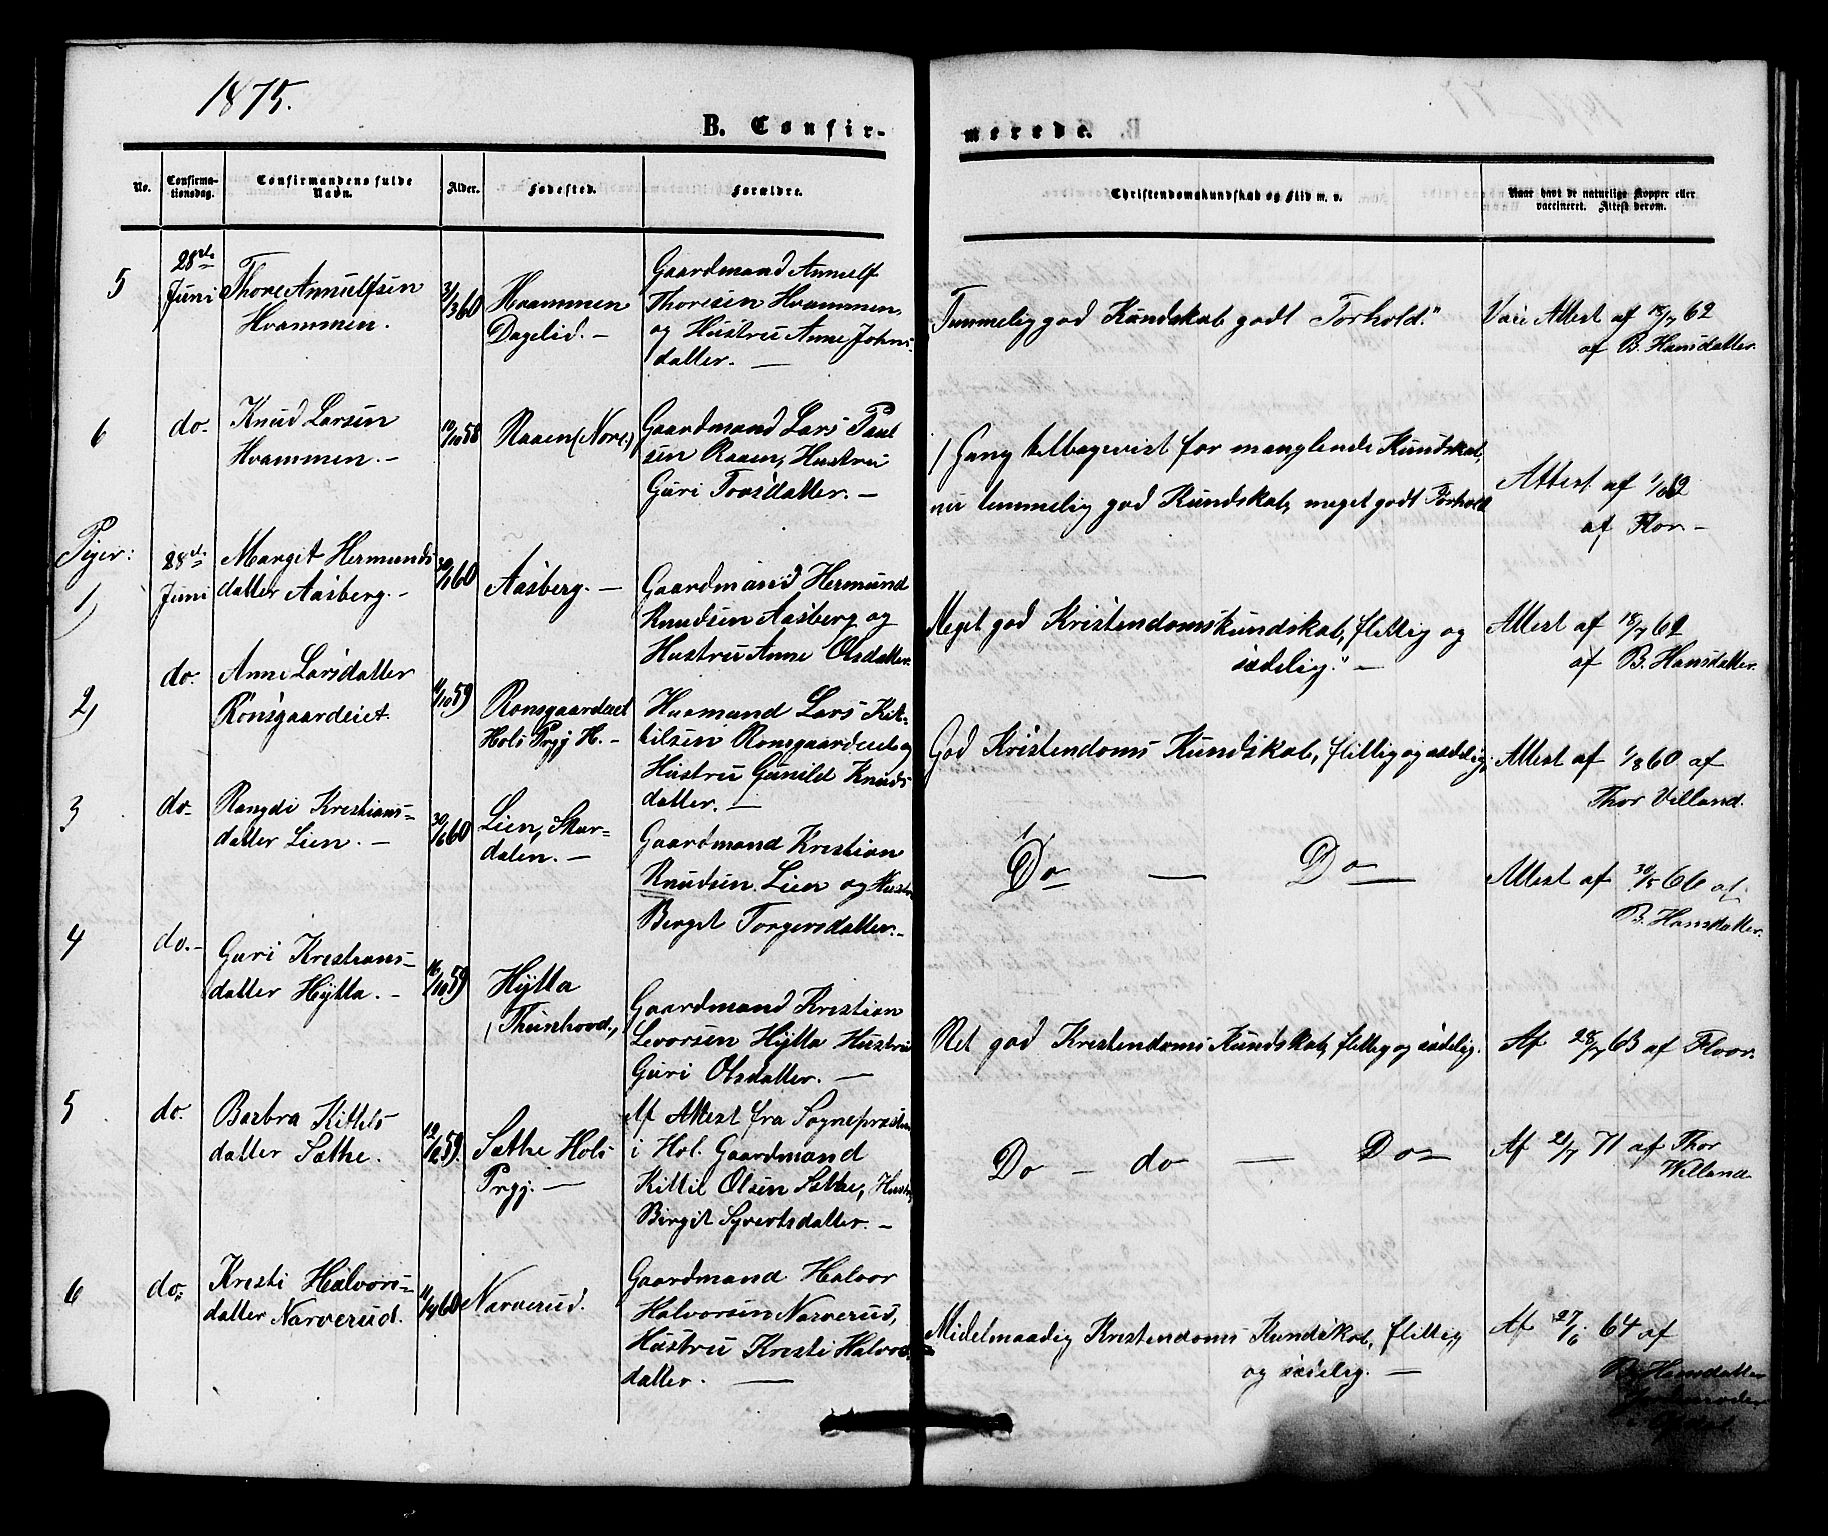 1875.
B. Confir-
merede.
No.
Confirma-
tionsdag.
Confirmandens fulde
Navn.
Alder.
Fødested.
Forældre.
Christendomskundskab og Flid m. v.
Naar havt de naturlige Kopper eller
vaccineret. Attest derom.
5
28de
Juni
Thore Annulfsen
Hvammen.
3/3 60
Hvammen
Dagelid. -
Gaardmand Annulf
Thoresen Hvammen,
og Hustru Anne Johns-
datter. -
Temmelig god Kundskab godt Forhold."
Vacc Attest af 18/7 62
af B. Hansdatter.
6
do.
Knud Larsen
Hvammen. -
10/10 58
Raaen (Nore)
Gaardmand Lars Paul
sen Raaen, Hustru
Guri Toosdatter. -
1 Gang tilbagevist for manglende Kundskab,
nu temmelig god Kundskab, meget godt Forhold
Attest af 62
af Flor -
Piger:
1)
28de
Juni
Margit Hermunds
datter Aasberg. -
60
Aasberg. -
Gaardmand Hermund
Knudsen Aasberg og
Hustru Anne Olsdatter.
Meget god Kristendomskundskab, flittig og
sædelig." -
Attest af 18/7 62
af B. Hansdatter.
2)
do.
Anne Larsdatter
Ronsgaardeiet.
11/10 59
Ronsgaardeiet
Hols Prgj H. -
Husmand Lars Kit-
tilsen Ronsgaardeiet og
Hustru Gunild Knuds
datter. -
God Kristendoms Kundskab, flittig og sædelig,
Attest af 1/8 60 af
Thor Villand.
3
do-
Rangdi Kristians-
datter Lien. -
30/6 60
Lien, Skur-
dalen. -
Gaardmand Kristian
Knudsen Lien og Hustru
Berget Torgersdatter. -
Do - Do -
Attest af 30/5 66 af
B. Hansdatter.
4
do. -
Guri Kristians-
datter Hÿtta. -
16/10 59
Hÿtta
(Thunhovd.)
Gaardmand Kristian
Levorsen Hÿtta Hustru
Guri Olsdatter. -
Ret god Kristendoms Kundskab, flittig og sædelig.
Af 28/7 63 af Floor.
5
do.
Barbra Kittils
datter Sæthe.
12/12 59.
Sæthe Hols
Prgj. -
Af Attest fra Sognepræsten
i Hol. Gaardmand
Kittil Olsen Sæthe, Hustru
Birgit Syvertsdatter. -
Do - do - Do -
Af 21/7 71 af Thor
Villand.
6
do.
Kristi Halvors-
datter Narverud.
11/4 60
Narverud.
Gaardmand Halvor
Halvorsen Narverud,
Hustru Kristi Halvors
datter. -
Midelmaadig Kristendoms Kundskab, flittig,
og sædelig. -
Af 27/6 64 af
B. Hansdatter